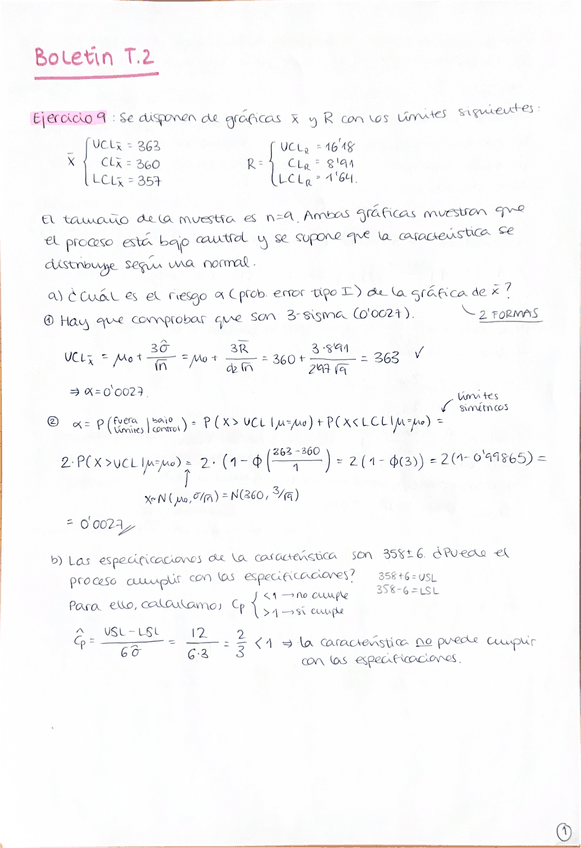 Boletín T.2
Ejercicio 9: Se disponen de gráficas x̄ y R con los límites siguientes:
x̄ { UCLx̄ = 363 R = { UCL_R = 16'18
CLx̄ = 360 CL_R = 8'91
LCLx̄ = 357 LCL_R = 1'64.
El tamaño de la muestra es n=9. Ambas gráficas muestran que
el proceso está bajo control y se supone que la característica se
distribuye según una normal.
a) ¿Cuál es el riesgo α (prob. error tipo I) de la gráfica de x̄?
① Hay que comprobar que son 3-sigma (0'0027). 2 FORMAS
UCLx̄ = μ₀ + 3σ̂/√n = μ₀ + 3R̄/d₂√n = 360 + 3·8'91/2'97√9 = 363 ✓
⇒ α=0'0027.
límites
simétricos
② α = P(fuera límites | bajo control) = P(X>UCL|μ=μ₀) + P(X<LCL|μ=μ₀) =
2·P(X>UCL|μ=μ₀) = 2·(1-Φ(363-360/1)) = 2(1-Φ(3)) = 2(1-0'99865) =
x≡N(μ₀,σ/√n) = N(360, 3/√9)
= 0'0027
b) Las especificaciones de la característica son 358±6. ¿Puede el
proceso cumplir con las especificaciones? 358+6=USL
358-6=LSL
Para ello, calculamos Cp { <1 → no cumple
>1 → si cumple
Ĉp = USL-LSL/6σ̂ = 12/6·3 = 2/3 <1 ⇒ la característica no puede cumplir
con las especificaciones.
1